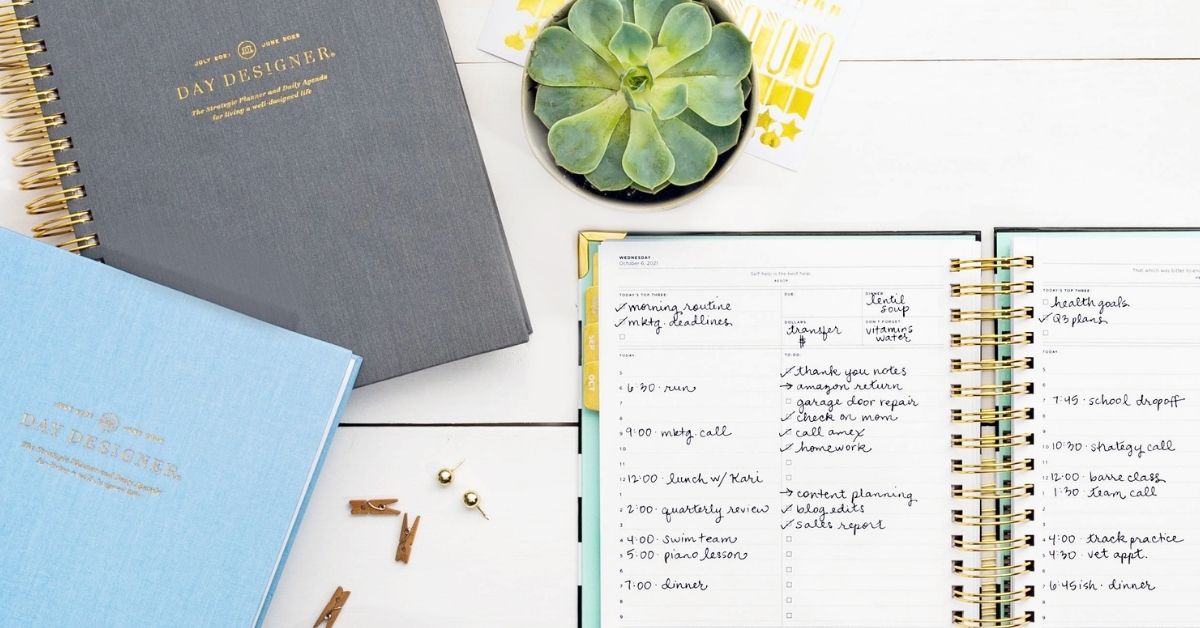 JULY 2021 JUNE 2022
DAY DESIGNER®
The Strategic Planner and Daily Agenda
for living a well-designed life
JULY 2021 JUNE 2022
DAY DESIGNER®
The Strategic Planner and Daily Agenda
for living a well-designed life
SEP
OCT
WEDNESDAY
October 6, 2021
Self-help is the best help.
AESOP
TODAY'S TOP THREE
morning routine
mktg. deadlines
DUE
DINNER
lentil
soup
DOLLARS
transfer
$
DON'T FORGET
vitamins
water
TODAY
5
6 6:30 · run
7
8
9 9:00 · mktg. call
10
11
12 12:00 · lunch w/ Kari
1
2 2:00 · quarterly review
3
4 4:00 · swim team
5 5:00 · piano lesson
6
7 7:00 · dinner
8
9
TO-DO
thank you notes
→ amazon return
garage door repair
check on mom
call amex
homework
→ content planning
blog edits
sales report
That which was bitter to
TODAY'S TOP THREE
health goals
Q3 plans
TODAY
5
6
7 7:45 · school dropoff
8
9
10 10:30 · strategy call
11
12 12:00 · barre class
1 1:30 · team call
2
3
4 4:00 · track practice
4:30 · vet appt.
6
7 6:45ish · dinner
8
9